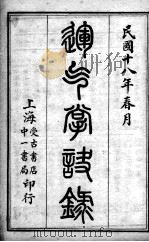 民國十八年春月
運气掌訣錄
上海
受古書店
中一書局
印行